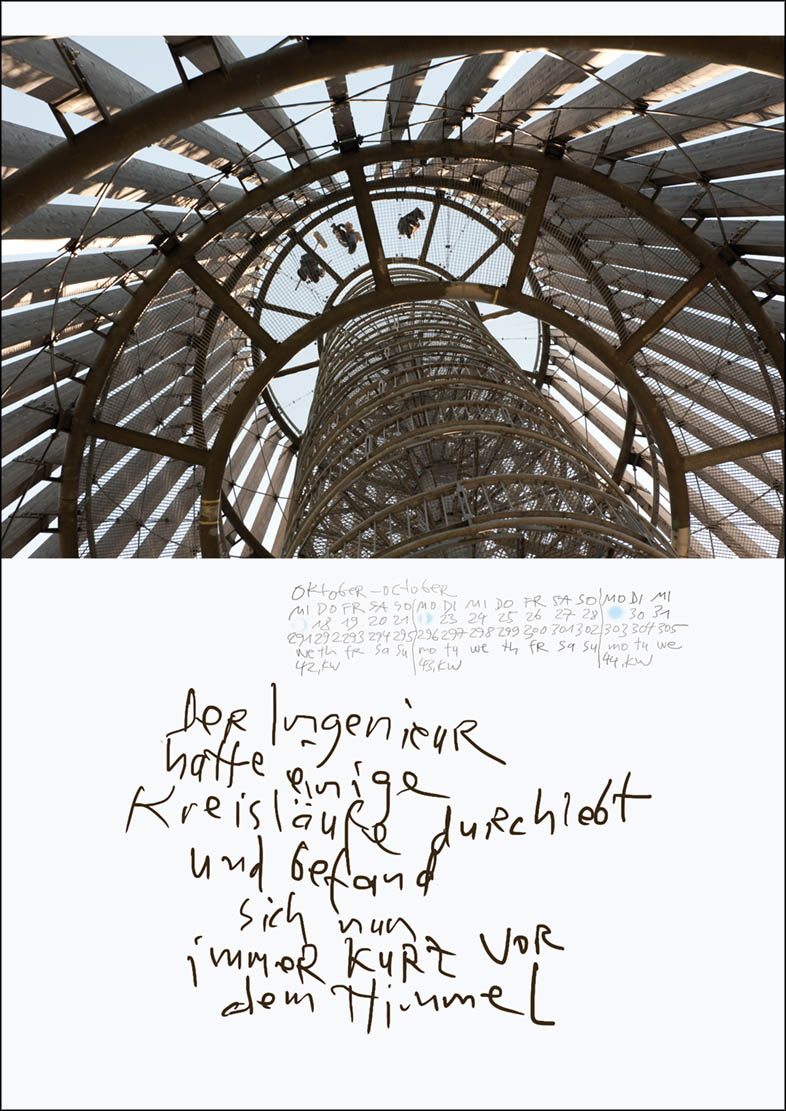 Oktober – october
MI DO FR SA SO MO DI MI DO FR SA SO MO DI MI
18 19 20 21 23 24 25 26 27 28 30 31
291 292 293 294 295 296 297 298 299 300 301 302 303 304 305
we th fr sa su mo tu we th fr sa su mo tu we
42.KW 43.KW 44.KW
Der Ingenieur
hatte einige
Kreisläufe durchlebt
und befand
sich nun
immer kurz vor
dem Himmel